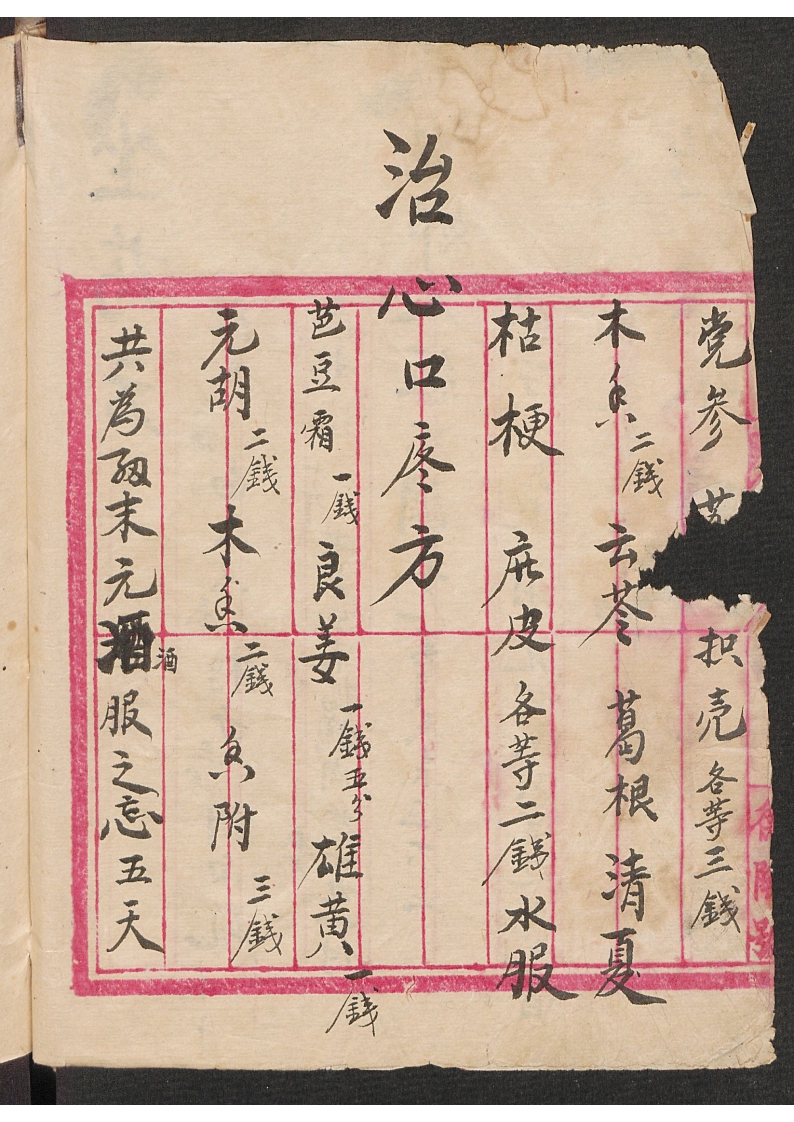 党参 苏 枳壳 各等三錢
木香 二錢 云苓 葛根 清夏
枯梗 庇皮 各等二錢 水服
治心口疼方
芭豆霜 一錢 良姜 一錢五分 雄黄 一錢
元胡 二錢 木香 二錢 香附 三錢
共為細末元酒 酒 服之忘五天